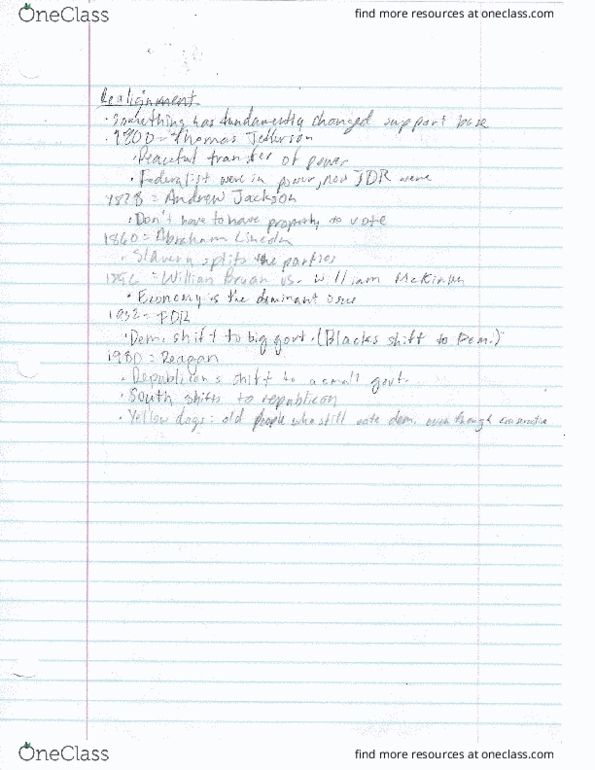 OneClass
find more resources at oneclass.com
Realignment
• Something has fundamently changed support base
• 1800 = Thomas Jefferson
• Peaceful transfer of power
• Federalist were in power, now JDR were
1828 = Andrew Jackson
• Don't have to have property to vote
1860 = Abraham Lincoln
• Slavery splits the parties
1896 = William Bryan vs. William McKinley
• Economy is the dominant issue
1932 = FDR
• Dem. shift to big govt. (Blacks shift to Dem.)
1980 = Reagan
• Republicans shift to a small govt.
• South shifts to republican
• Yellow dogs: old people who still vote dem. even though conservative
OneClass
find more resources at oneclass.com